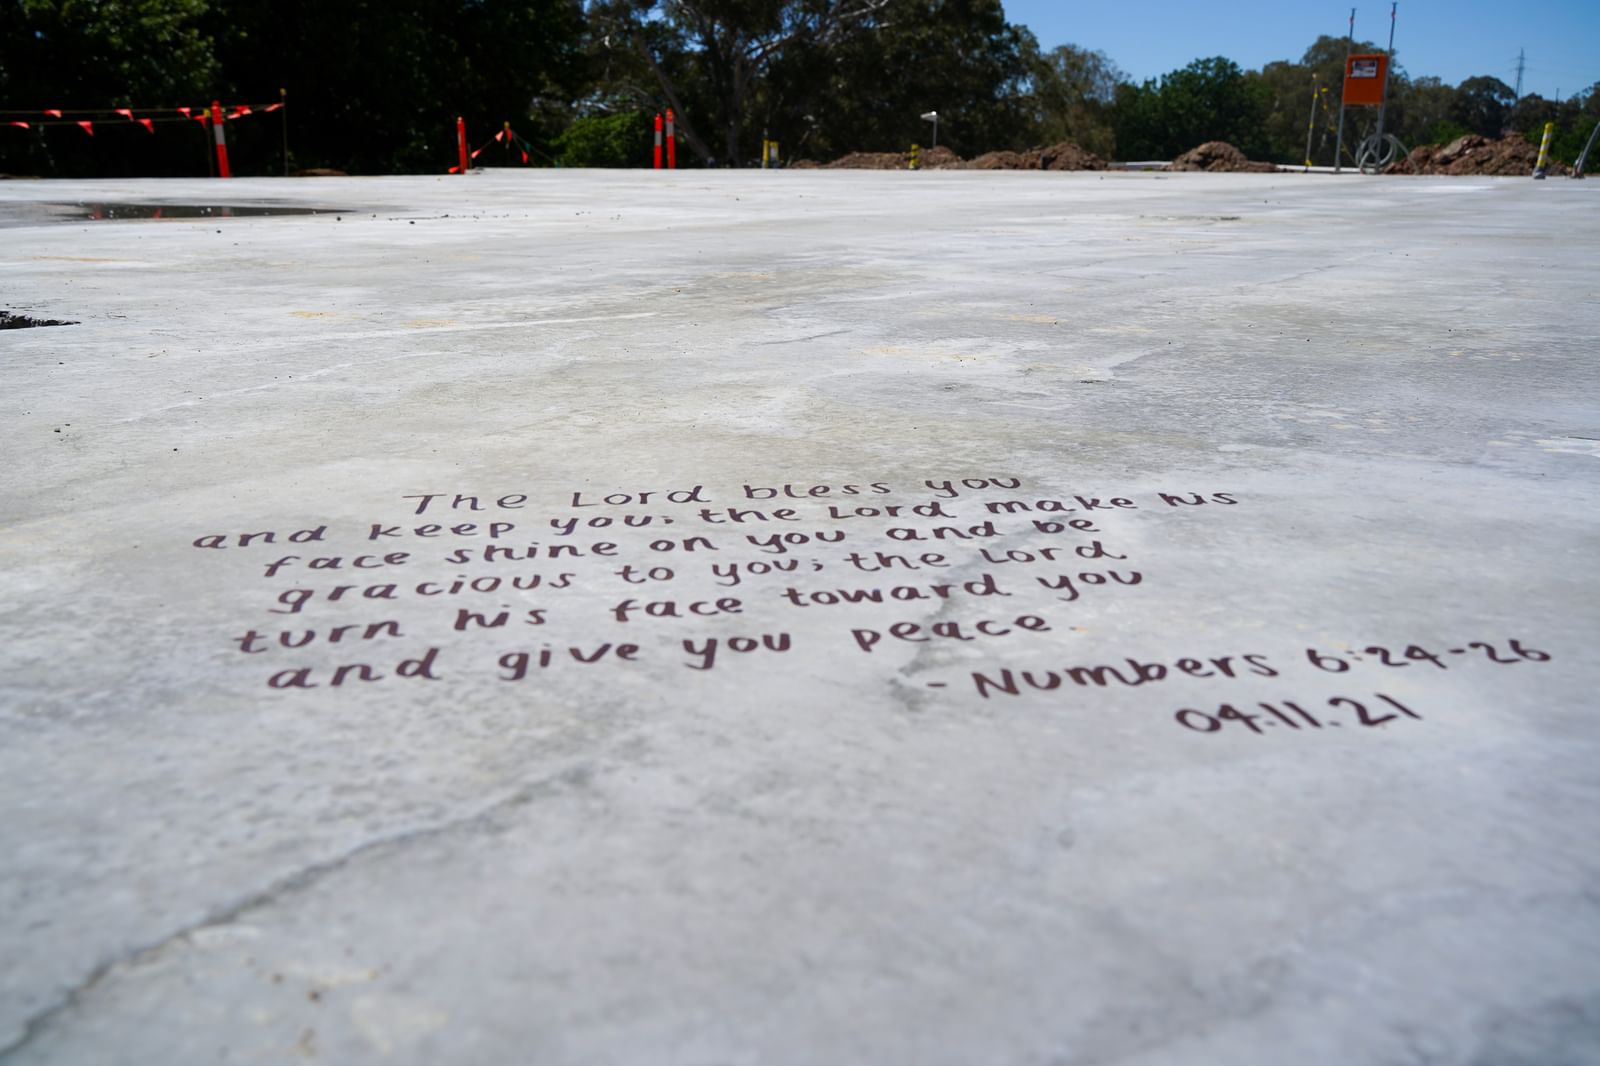 The Lord bless you
and keep you; the Lord make his
face shine on you and be
gracious to you; the Lord
turn his face toward you
and give you peace.
- Numbers 6:24-26
04.11.21